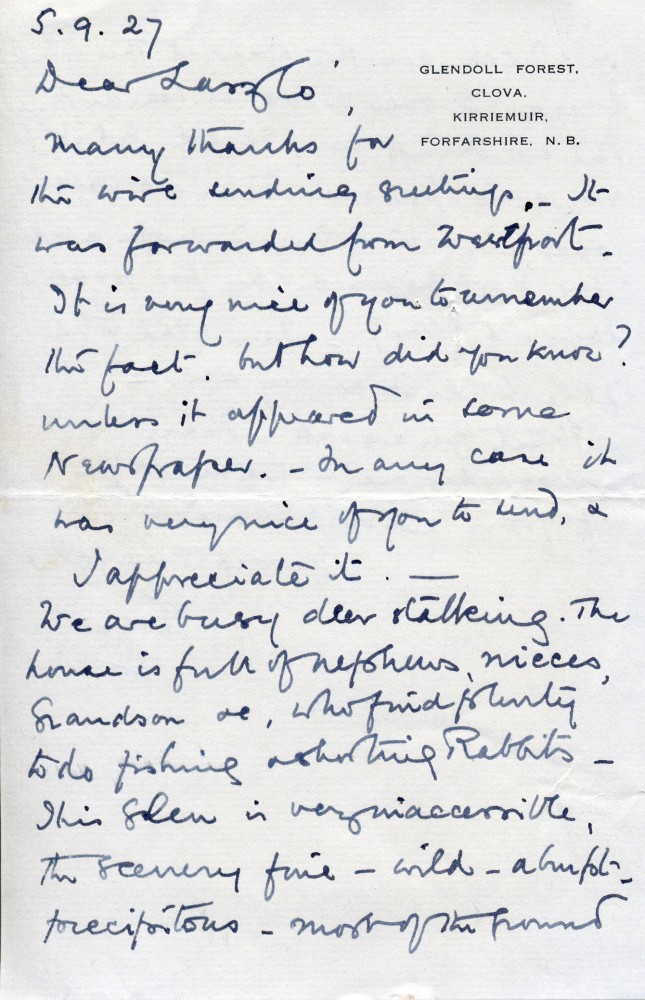 5.9.27
GLENDOLL FOREST,
CLOVA,
KIRRIEMUIR,
FORFARSHIRE, N.B.
Dear Laszlo',
Many thanks for
the wire sending greetings. - It
was forwarded from Westport -
It is very nice of you to remember
the fact. but how did you know?
unless it appeared in some
Newspaper. - In any case it
was very nice of you to send, &
I appreciate it. —
We are busy deer stalking. The
house is full of nephews, nieces,
Grandson &c, who find plenty
to do fishing & shooting Rabbits -
This Glen is very inaccessible,
the scenery fine - wild - abrupt -
precipitous - most of the ground